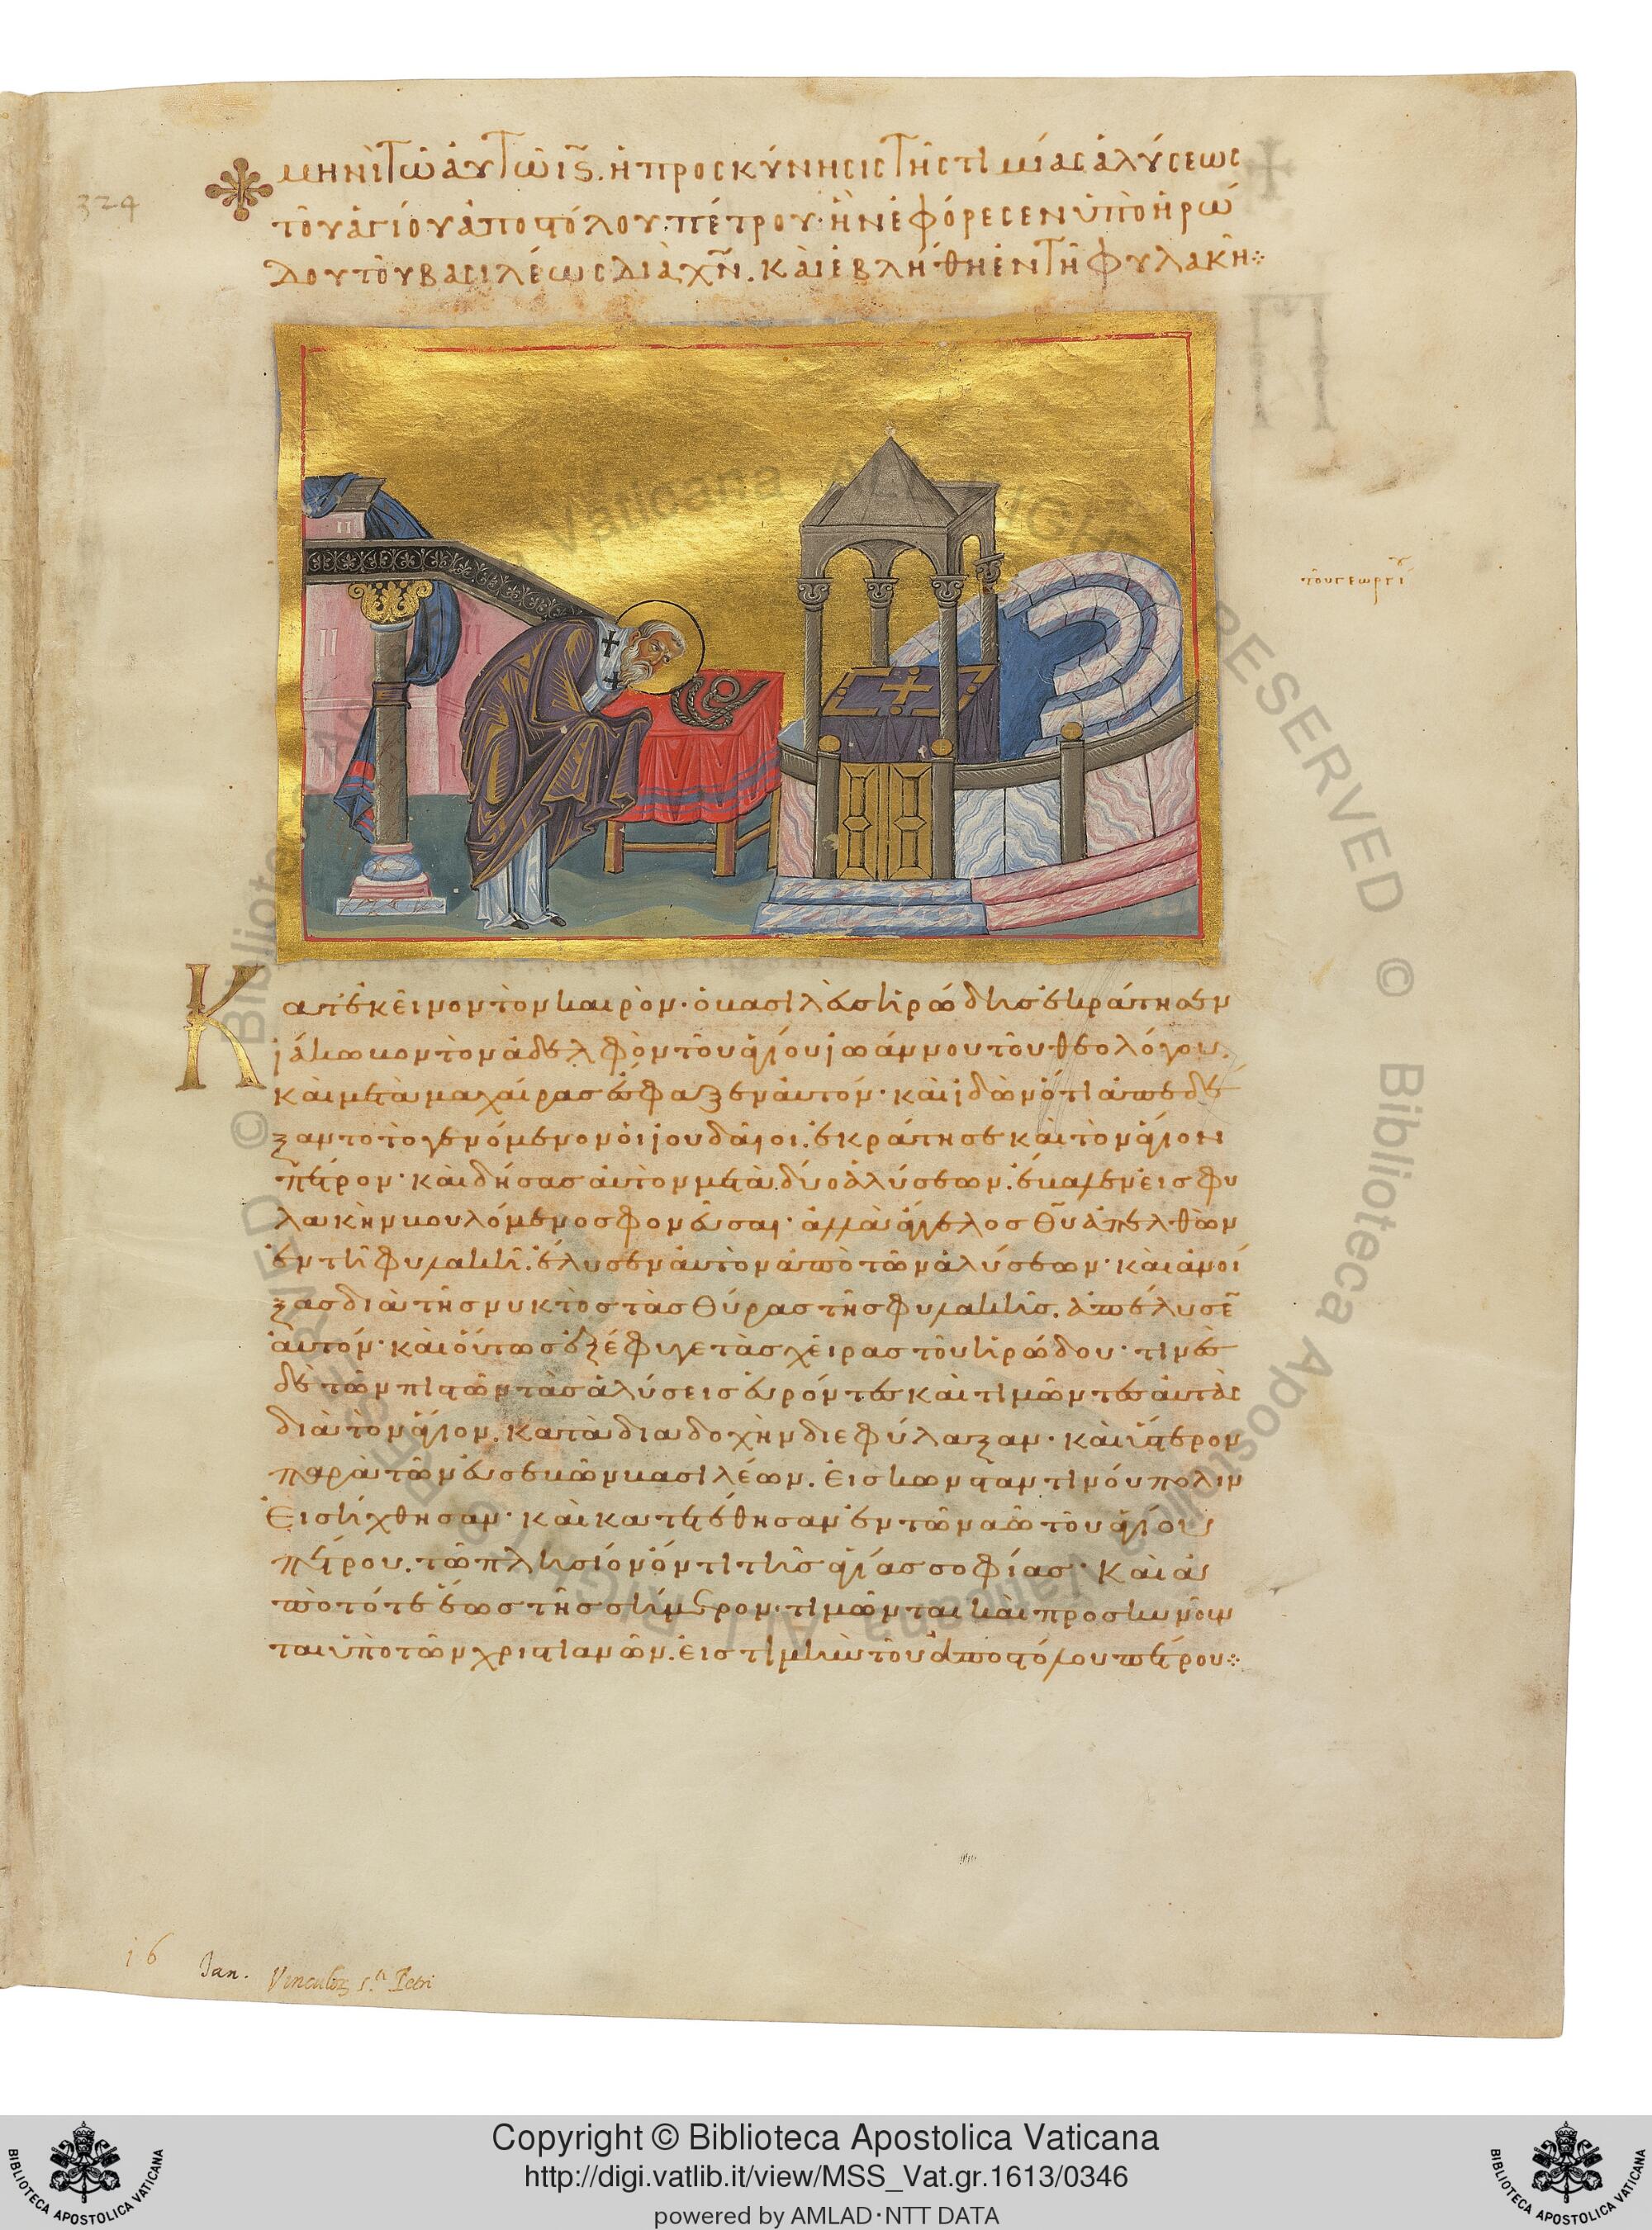 324
μηνὶ τῷ αὐτῷ ις. ἡ προσκύνησις τῆς τιμίας ἁλύσεως
τοῦ ἁγίου ἀποστόλου πέτρου· ἣν ἐφόρεσεν ὑπὸ ἡρώ
δου τοῦ βασιλέως διὰ χν. καὶ ἐβλήθη ἐν τῇ φυλακῇ
τοῦ γεωργί
Κατ' ἐκεῖνον τὸν καιρὸν· ὁ βασιλεὺς ἡρώδης ἐκράτησεν
ἰάκωβον τὸν ἀδελφὸν τοῦ ἁγίου ἰωάννου τοῦ θεολόγου.
καὶ μετὰ μαχαίρας ἔσφαξεν αὐτόν· καὶ ἰδὼν ὅτι ἀπεδέ
ξαντο τὸ γενόμενον οἱ ἰουδαῖοι. ἐκράτησε καὶ τὸν ἅγιον
πέτρον· καὶ δήσας αὐτὸν μετὰ δύο ἁλύσεων. ἔβαλεν εἰς φυ
λακὴν βουλόμενος φονεῦσαι· ἀλλὰ ἄγγελος θυ ἀπελθὼν
ἐν τῇ φυλακῇ. ἔλυσεν αὐτὸν ἀπὸ τῶν ἁλύσεων· καὶ ἀνοί
ξας διὰ τῆς νυκτὸς τὰς θύρας τῆς φυλακῆς. ἀπέλυσε
αὐτόν· καὶ οὕτως ἐξέφυγε τὰς χεῖρας τοῦ ἡρώδου· τινὲς
δὲ τῶν πιστῶν τὰς ἁλύσεις εὑρόντες καὶ τιμῶντες αὐτὰς
διὰ τὸν ἅγιον. κατὰ διαδοχὴν διεφύλαξαν· καὶ ὕστερον
παρὰ τῶν εὐσεβῶν βασιλέων. εἰς κωνσταντινούπολιν
εἰσήχθησαν· καὶ κατετέθησαν ἐν τῷ ναῷ τοῦ ἁγίου
πέτρου. τῷ πλησίον ὄντι τῆς ἁγίας σοφίας· καὶ ἀ
πὸ τότε ἕως τῆς σήμερον· τιμῶνται καὶ προσκυνοῦν
ται ὑπὸ τῶν χριστιανῶν. εἰς τιμὴν τοῦ ἀποστόλου πέτρου
16 Jan. Vinculor. s.ti Petri
Copyright © Biblioteca Apostolica Vaticana
http://digi.vatlib.it/view/MSS_Vat.gr.1613/0346
powered by AMLAD·NTT DATA
BIBLIOTECA APOSTOLICA VATICANA
BIBLIOTECA APOSTOLICA VATICANA